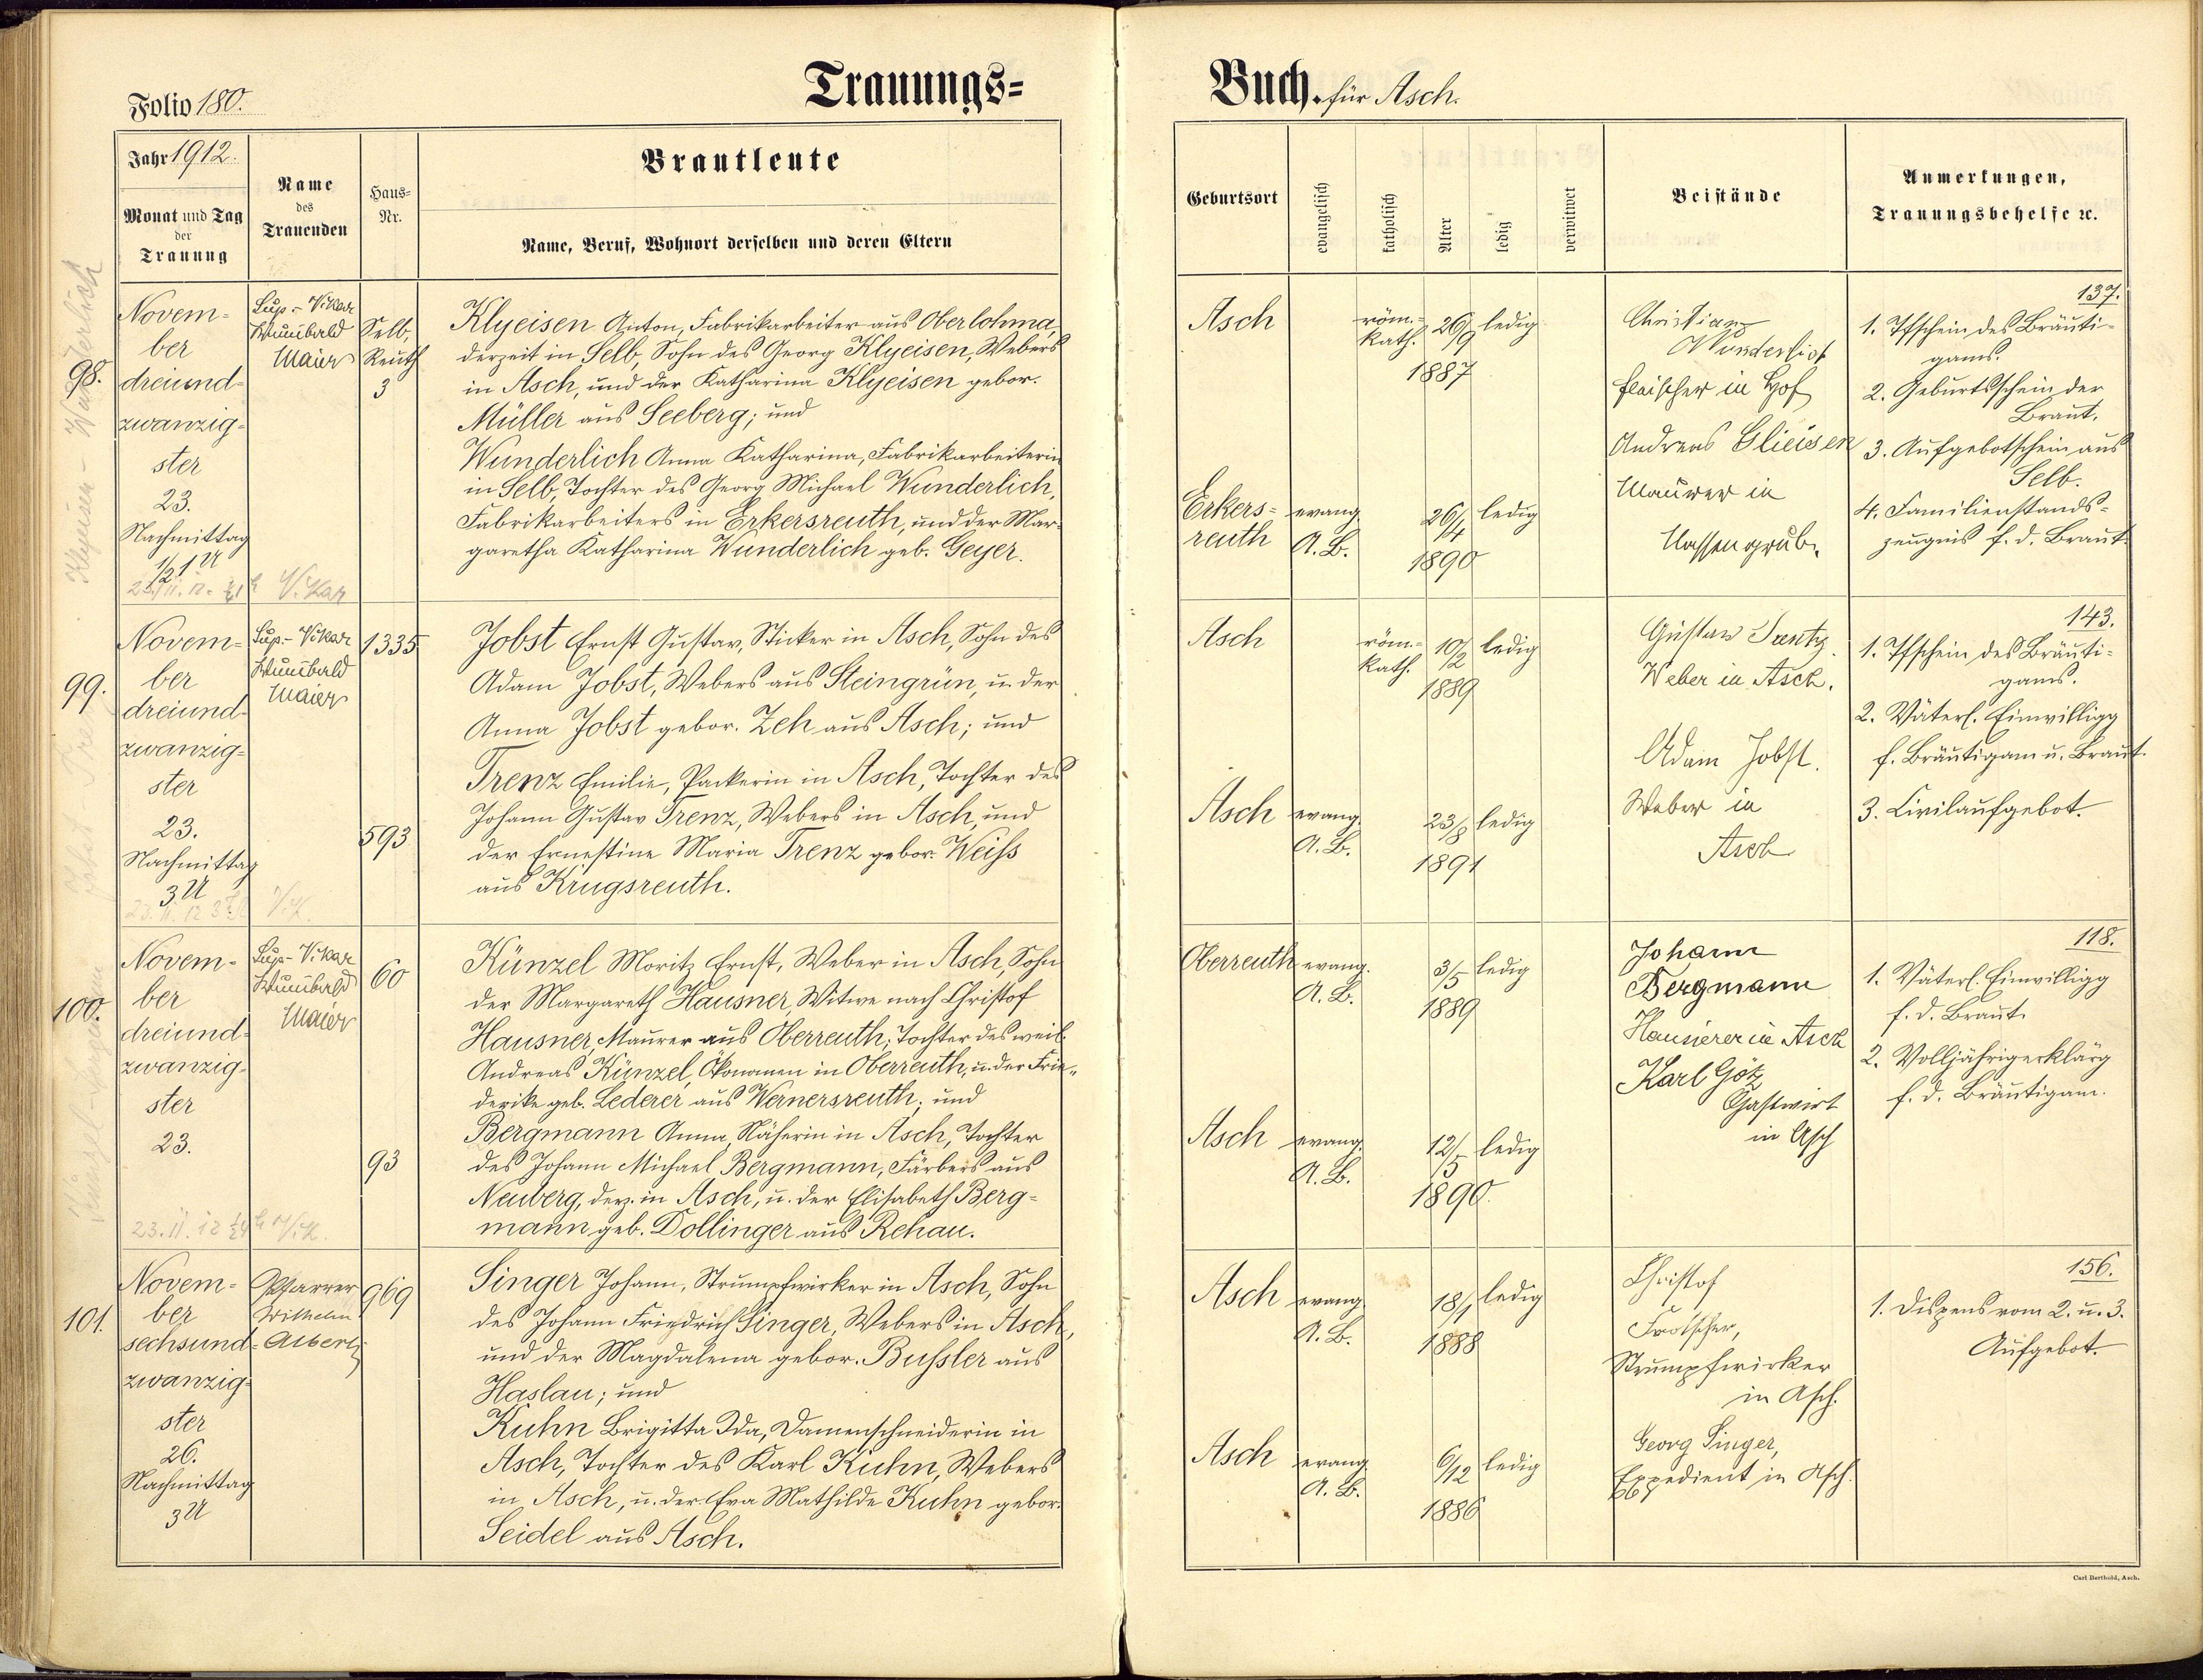 Folio 180.
Trauungs=
Buch. für Asch.
Jahr 1912.
Monat und Tag
der
Trauung
Name
des
Trauenden
Haus=
Nr.
Brautleute
Name, Beruf, Wohnort derselben und deren Eltern
Geburtsort
evangelisch
katholisch
Alter
ledig
verwitwet
Beistände
Anmerkungen,
Trauungsbehelfe ec.
98.
Novem=
ber
dreiund=
zwanzig=
ster
23.
Nachmittag
1/2 1 U
Sup.-Vikar
Wunibald
Maier
Selb,
Reuth
3
Klyeisen Anton, Fabrikarbeiter aus Oberlohma,
derzeit in Selb, Sohn des Georg Klyeisen, Webers
in Asch, und der Katharina Klyeisen gebor.
Müller aus Seeberg; und
Wunderlich Anna Katharina, Fabrikarbeiterin
in Selb, Tochter des Georg Michael Wunderlich,
Fabrikarbeiters in Erkersreuth, und der Mar-
garetha Katharina Wunderlich geb. Geyer.
Asch
röm.-
kath.
26/9
1887
ledig
Erkers=
reuth
evang.
A. B.
26/4
1890
ledig
Christian
Wunderlich
Fleischer in Hof
Andreas Glieisen
Maurer in
Nassengrub.
137.
1. Pfschein des Bräuti-
gams.
2. Geburtsschein der
Braut.
3. Aufgebotschein aus
Selb.
4. Familienstands-
zeugnis f. d. Braut.
23./11. 12. 1/2 1 h Vikar
99.
Novem=
ber
dreiund-
zwanzig=
ster
23.
Nachmittag
3 U
Sup.-Vikar
Wunibald
Maier
1335
593
Jobst Ernst Gustav, Sticker in Asch, Sohn des
Adam Jobst, Webers aus Steingrün, u. der
Anna Jobst gebor. Zeh aus Asch; und
Trenz Emilie, Packerin in Asch, Tochter des
Johann Gustav Trenz, Webers in Asch, und
der Ernestine Maria Trenz gebor. Weiss
aus Krugsreuth.
Asch
röm.-
kath.
10/2
1889
ledig
Asch
evang.
A. B.
23/8
1891
ledig
Gustav Trentz.
Weber in Asch.
Adam Jobst.
Weber in
Asch
143.
1. Pfschein des Bräuti-
gams.
2. Väterl. Einwilligg
f. Bräutigam u. Braut.
3. Civilaufgebot.
100.
Novem-
ber
dreiund=
zwanzig-
ster
23.
Sup-Vikar
Wunibald
Maier
60
93
Künzel Moritz Ernst, Weber in Asch, Sohn
der Margareth Hausner, Witwe nach Christof
Hausner, Maurer aus Oberreuth; Tochter des weil.
Andreas Künzel, Ökonomen in Oberreuth, u. der Frie-
derike geb. Lederer aus Wernersreuth; und
Bergmann Anna, Näherin in Asch, Tochter
des Johann Michael Bergmann, Färbers aus
Neuberg, derz. in Asch, u. der Elisabeth Berg-
mann geb. Dollinger aus Rehau.
Oberreuth
evang.
A. B.
3/5
1889
ledig
Asch
evang.
A. B.
12/5
1890
ledig
Johann
Bergmann
Hausierer in Asch
Karl Götz
Gastwirt
in Asch
118.
1. Väterl. Einwilligg
f. d. Braut.
2. Volljährigerklärg
f. d. Bräutigam.
101.
Novem=
ber
sechsund=
zwanzig=
ster
26.
Nachmittag
3 U
Pfarrer
Wilhelm
Alberti
969
Singer Johann, Strumpfwirker in Asch, Sohn
des Johann Friedrich Singer, Webers in Asch,
und der Magdalena gebor. Bussler aus
Haslau; und
Kuhn Brigitta Ida, Damenschneiderin in
Asch, Tochter des Karl Kuhn, Webers
in Asch, u. der Eva Mathilde Kuhn gebor.
Seidel aus Asch.
Asch
evang.
A. B.
18/1
1888
ledig
Asch
evang.
A. B.
6/12
1886
ledig
Christof
Frotscher,
Strumpfwirker
in Asch.
Georg Singer,
Expedient in Asch.
156.
1. Dispens vom 2. u. 3.
Aufgebot.
Carl Berthold, Asch.